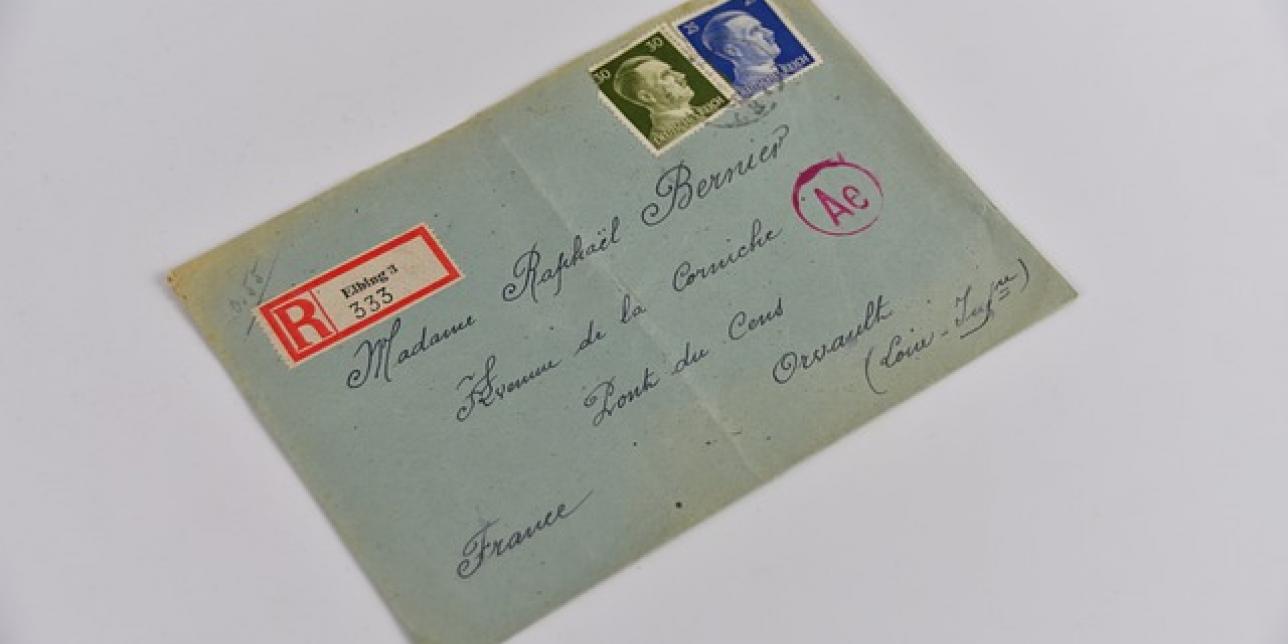 30 30
DEUTSCHES REICH
25
DEUTSCHES REICH
0.55
R
Elbing 3
333
Ae
Madame Raphaël Bernier
Avenue de la Corniche
Pont du Cens
Orvault
(Loire-Infre)
France